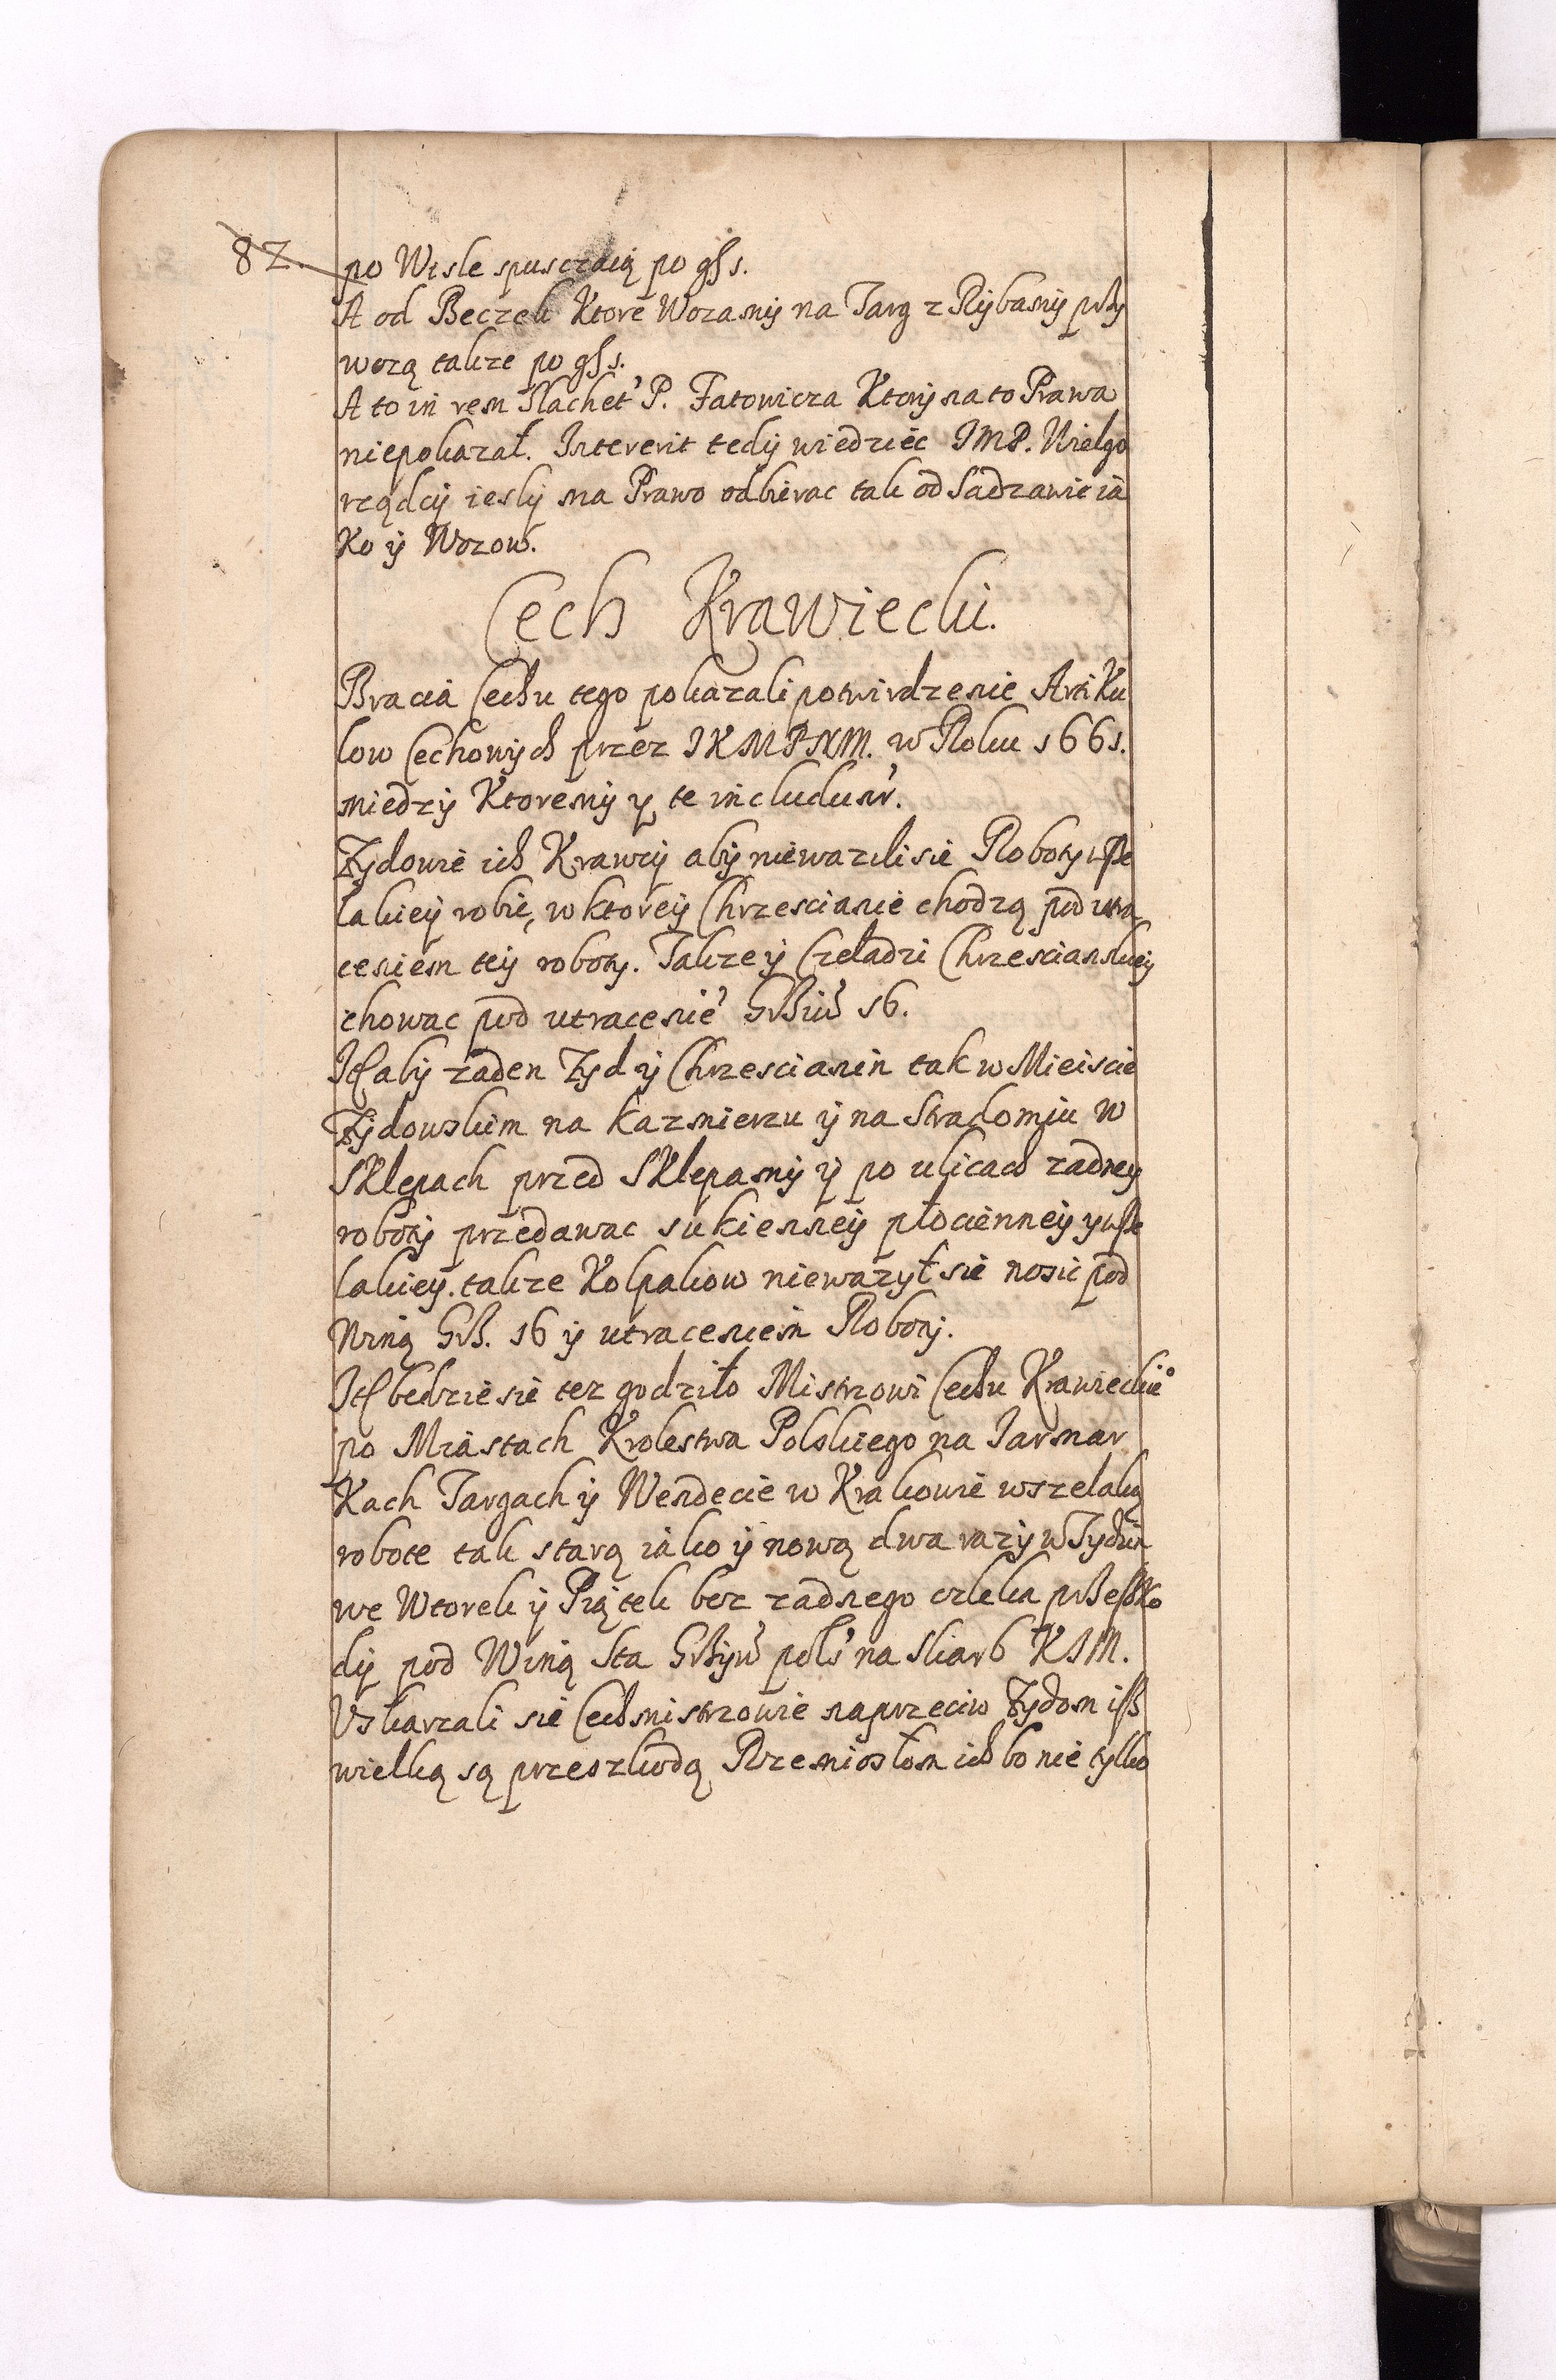 82.
po Wisle spusczaią po gſ 1.
A od Beczek Ktore Wozamÿ na Targ z Rÿbamÿ przy
wozą takze po gſ 1.
A to in rem Slachet' P. Fatowicza Ktorÿ na to Prawa
niepokazał. Intererit tedÿ wiedziec JMP. Wielgo
rządcÿ ieslÿ ma Prawo odbierac tak od Sadzawic ia
Ko ÿ Wozow.
Cech Krawiecki.
Bracia Cechu tego pokazali potwirdzenie Artiku
low Cechowÿch przez JKMPNM. w Roku 1661.
miedzÿ Ktoremÿ y te includunt'.
Zydowie ich Krawcÿ abÿ niewazÿli sie Roboty wße
lakieÿ robic, w ktoreÿ Chrzescianie chodzą pod utra
ceniem teÿ roboty. Takze ÿ Czeladzi Chrzescianskieÿ
chowac pod utracenie' Grziw' 16.
Itſ abÿ zaden Zyd ÿ Chrzescianin tak w Miescie
Zydowskim na Kazmierzu ÿ na Stradomiu w
Sklepach przed Sklepamÿ ÿ po ulicach zadney
robotÿ przedawac sukienneÿ płocienneÿ y wße
lakieÿ. takze Kolpakow niewazył sie nosic pod
Winą Grz. 16 ÿ utraceniem Roboty.
Itſ bedzie sie tez godziło Mistrzowi Cechu Krawieckie°
po Miastach Krolestwa Polskiego na Jarmar
Kach Targach ÿ Wendecie w Krakowie wszelaką
robote tak starą iako ÿ nową dwa razÿ w Tydzin
we Wtorek ÿ Piątek bez zadnego człeka przeßko
dÿ pod Winą Sta Grzÿw' pols' na Skarb KJM.
Uskarzali sie Cechmistrzowie naprzeciw Zydom iß
wielką są przeszkodą Rzemiosłom ich bo nie tylko